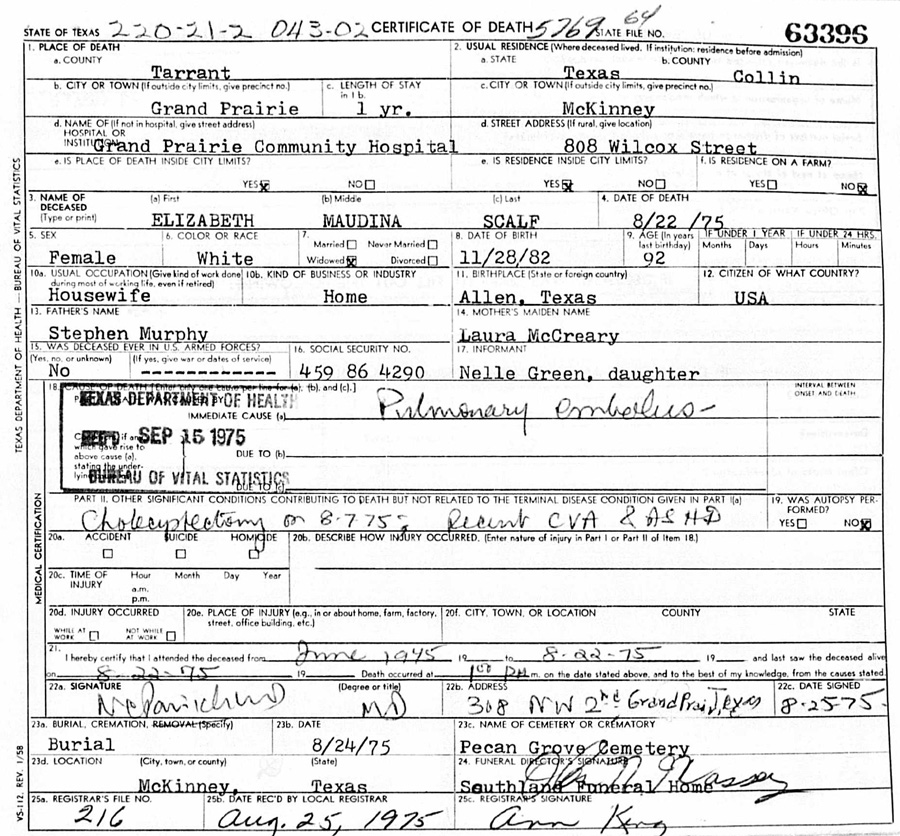 STATE OF TEXAS 220-21-2 043-02 CERTIFICATE OF DEATH 5769 64 STATE FILE NO. 63396
1. PLACE OF DEATH 2. USUAL RESIDENCE (Where deceased lived. If institution: residence before admission)
a. COUNTY a. STATE b. COUNTY
Tarrant Texas Collin
b. CITY OR TOWN (If outside city limits, give precinct no.) c. LENGTH OF STAY in 1 b. c. CITY OR TOWN (If outside city limits, give precinct no.)
Grand Prairie 1 yr. McKinney
d. NAME OF (If not in hospital, give street address) d. STREET ADDRESS (If rural, give location)
HOSPITAL OR
INSTITUTION Grand Prairie Community Hospital 808 Wilcox Street
e. IS PLACE OF DEATH INSIDE CITY LIMITS? e. IS RESIDENCE INSIDE CITY LIMITS? f. IS RESIDENCE ON A FARM?
YES☒ NO☐ YES☒ NO☐ YES☐ NO☒
3. NAME OF DECEASED (Type or print) (a) First (b) Middle (c) Last 4. DATE OF DEATH
ELIZABETH MAUDINA SCALF 8/22 /75
5. SEX 6. COLOR OR RACE 7. Married☐ Never Married☐ Widowed☒ Divorced☐ 8. DATE OF BIRTH 9. AGE (In years last birthday) IF UNDER 1 YEAR Months Days IF UNDER 24 HRS. Hours Minutes
Female White 11/28/82 92
10a. USUAL OCCUPATION (Give kind of work done during most of working life, even if retired) 10b. KIND OF BUSINESS OR INDUSTRY 11. BIRTHPLACE (State or foreign country) 12. CITIZEN OF WHAT COUNTRY?
Housewife Home Allen, Texas USA
13. FATHER'S NAME 14. MOTHER'S MAIDEN NAME
Stephen Murphy Laura McCreary
15. WAS DECEASED EVER IN U.S. ARMED FORCES? 16. SOCIAL SECURITY NO. 17. INFORMANT
(Yes, no, or unknown) (If yes, give war or dates of service)
No ------------- 459 86 4290 Nelle Green, daughter
18. CAUSE OF DEATH [Enter only one cause per line for (a), (b), and (c).] INTERVAL BETWEEN ONSET AND DEATH
TEXAS DEPARTMENT OF HEALTH
IMMEDIATE CAUSE (a) Pulmonary embolus -
REC'D SEP 15 1975
which gave rise to above cause (a), stating the under- DUE TO (b)
BUREAU OF VITAL STATISTICS
DUE TO (c)
PART II. OTHER SIGNIFICANT CONDITIONS CONTRIBUTING TO DEATH BUT NOT RELATED TO THE TERMINAL DISEASE CONDITION GIVEN IN PART I(a) 19. WAS AUTOPSY PERFORMED?
Cholecystectomy on 8-7-75; Recent CVA & ASHD YES☐ NO☒
20a. ACCIDENT SUICIDE HOMICIDE 20b. DESCRIBE HOW INJURY OCCURRED. (Enter nature of injury in Part I or Part II of Item 18.)
20c. TIME OF INJURY Hour Month Day Year
a.m.
p.m.
20d. INJURY OCCURRED 20e. PLACE OF INJURY (e.g., in or about home, farm, factory, street, office building, etc.) 20f. CITY, TOWN, OR LOCATION COUNTY STATE
WHILE AT WORK ☐ NOT WHILE AT WORK ☐
21. I hereby certify that I attended the deceased from June 1945 19 to 8-22-75 19 and last saw the deceased alive
on 8-22-75 19 Death occurred at 1:00 PM m. on the date stated above, and to the best of my knowledge, from the causes stated.
22a. SIGNATURE (Degree or title) 22b. ADDRESS 22c. DATE SIGNED
MD 308 NW 2nd Grand Prairie, Texas 8-25-75
23a. BURIAL, CREMATION, REMOVAL (Specify) 23b. DATE 23c. NAME OF CEMETERY OR CREMATORY
Burial 8/24/75 Pecan Grove Cemetery
23d. LOCATION (City, town, or county) (State) 24. FUNERAL DIRECTOR'S SIGNATURE
McKinney, Texas Southland Funeral Home
25a. REGISTRAR'S FILE NO. 25b. DATE REC'D BY LOCAL REGISTRAR 25c. REGISTRAR'S SIGNATURE
216 Aug. 25, 1975 Ann King
TEXAS DEPARTMENT OF HEALTH — BUREAU OF VITAL STATISTICS
MEDICAL CERTIFICATION
VS-112 REV. 1/58